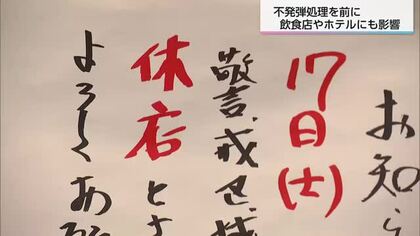 不発弾処理を前に
飲食店やホテルにも影響
お知ら
17日(土)
警戒
休店と
よろしくお